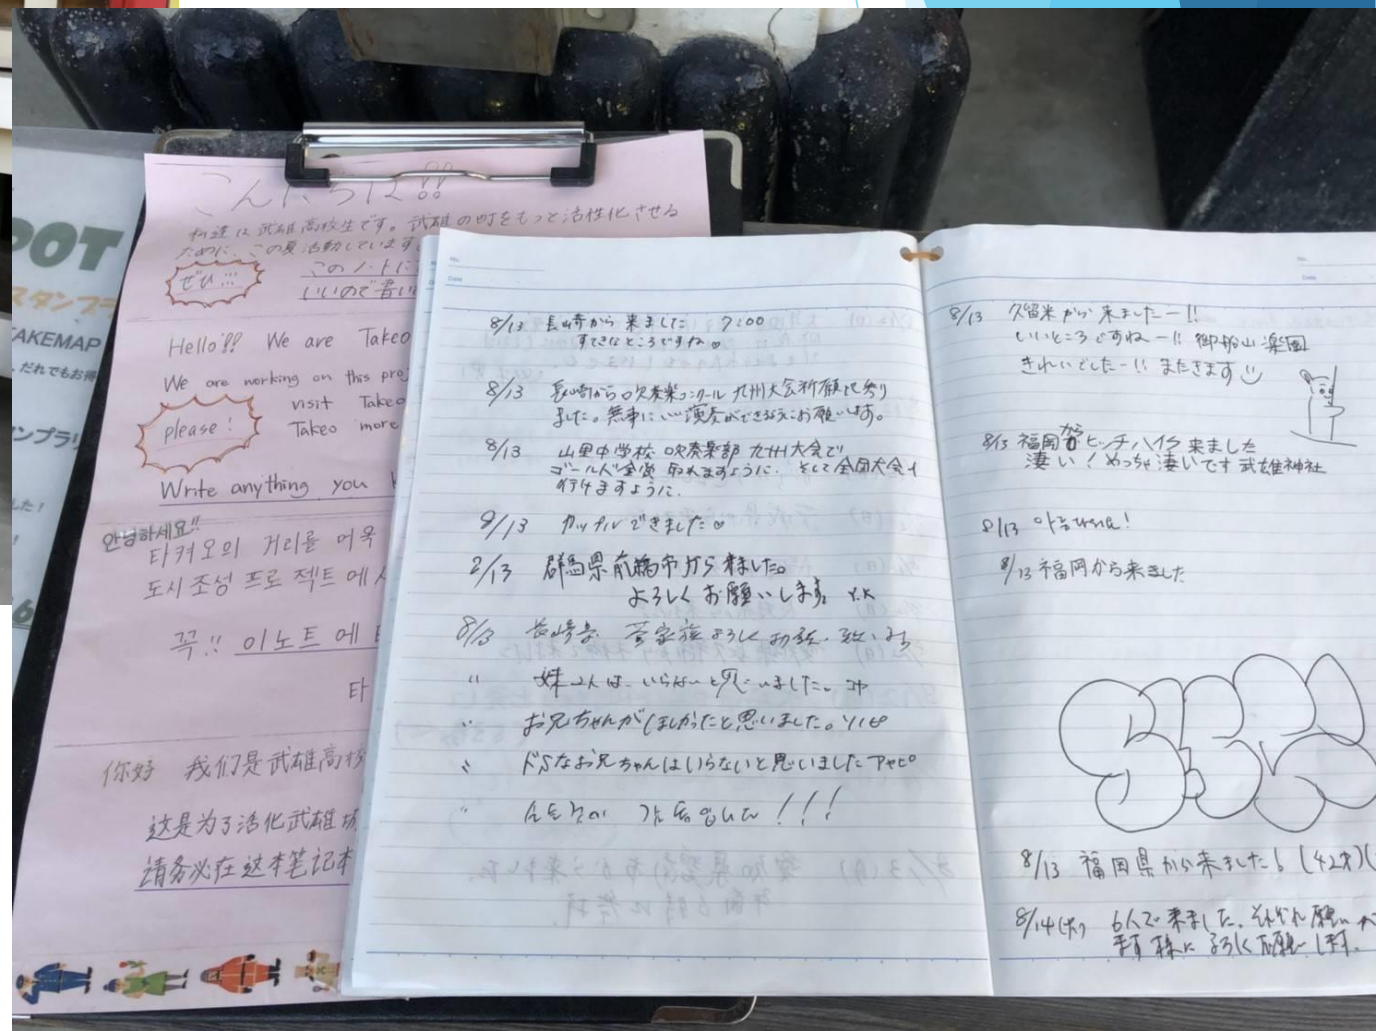 POT
スタンプラ
TAKEMAP
だれでもお得
ンプラリ
した!
6
こんにちは!!
私達は武雄高校生です。武雄の町をもっと活性化させる
ために、この夏活動しています
ぜひ…
このノートに
いいので書い
Hello!! We are Takeo
We are working on this pro
please!
visit Takeo
Takeo more
Write anything you
안녕하세요!!
타케오의 거리를 더욱
도시 조성 프로젝트에서
꼭!! 이 노트에
타
你好 我们是武雄高校
这是为了活化武雄城
请务必在这本笔记本
No.
Date
8/13 長崎から来ました 7:00
すてきなところですね♡
8/13 長崎から吹奏楽コンクール九州大会祈願に参り
ました。無事にいい演奏ができるようにお願いします。
8/13 山里中学校 吹奏楽部 九州大会で
ゴールド金賞取れますように。そして全国大会へ
行けますように。
8/13 カップルできました♡
2/13 群馬県前橋市から来ました。
よろしくお願いします。Y.K
8/13 長崎県 家族よろしく
〃 妹2人はいらないと思いました。
〃 お兄ちゃんがほしかったと思いました。
〃 ドSなお兄ちゃんはいらないと思いました アヤピ
〃 !!!
No.
Date
8/13 久留米から来ましたー!!
いいところですねー!! 御船山楽園
きれいでしたー!! またきます
8/13 福岡からヒッチハイク来ました
凄い!めっちゃ凄いです 武雄神社
8/13
8/13 福岡から来ました
8/13 福岡県から来ました! (42才)(
8/14(水) 6人で来ました。それぞれ願いが
ます様によろしくお願いします。